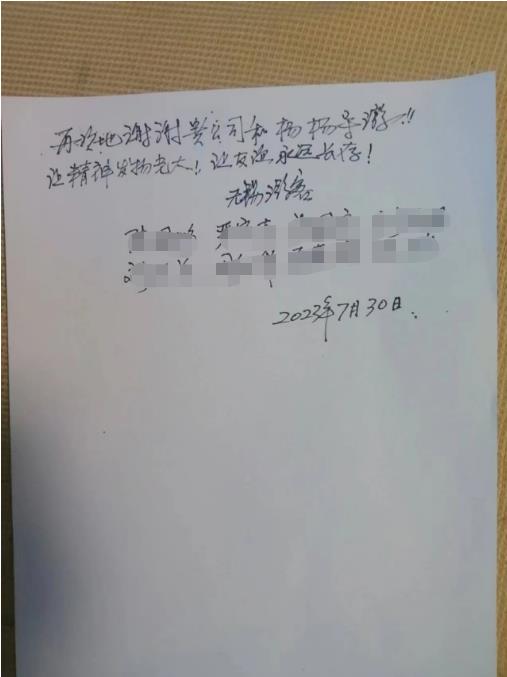 再次地谢谢贵公司和杨杨导游!!
让精神发扬光大!让友谊永远长存!
无锡游客
2023年7月30日.